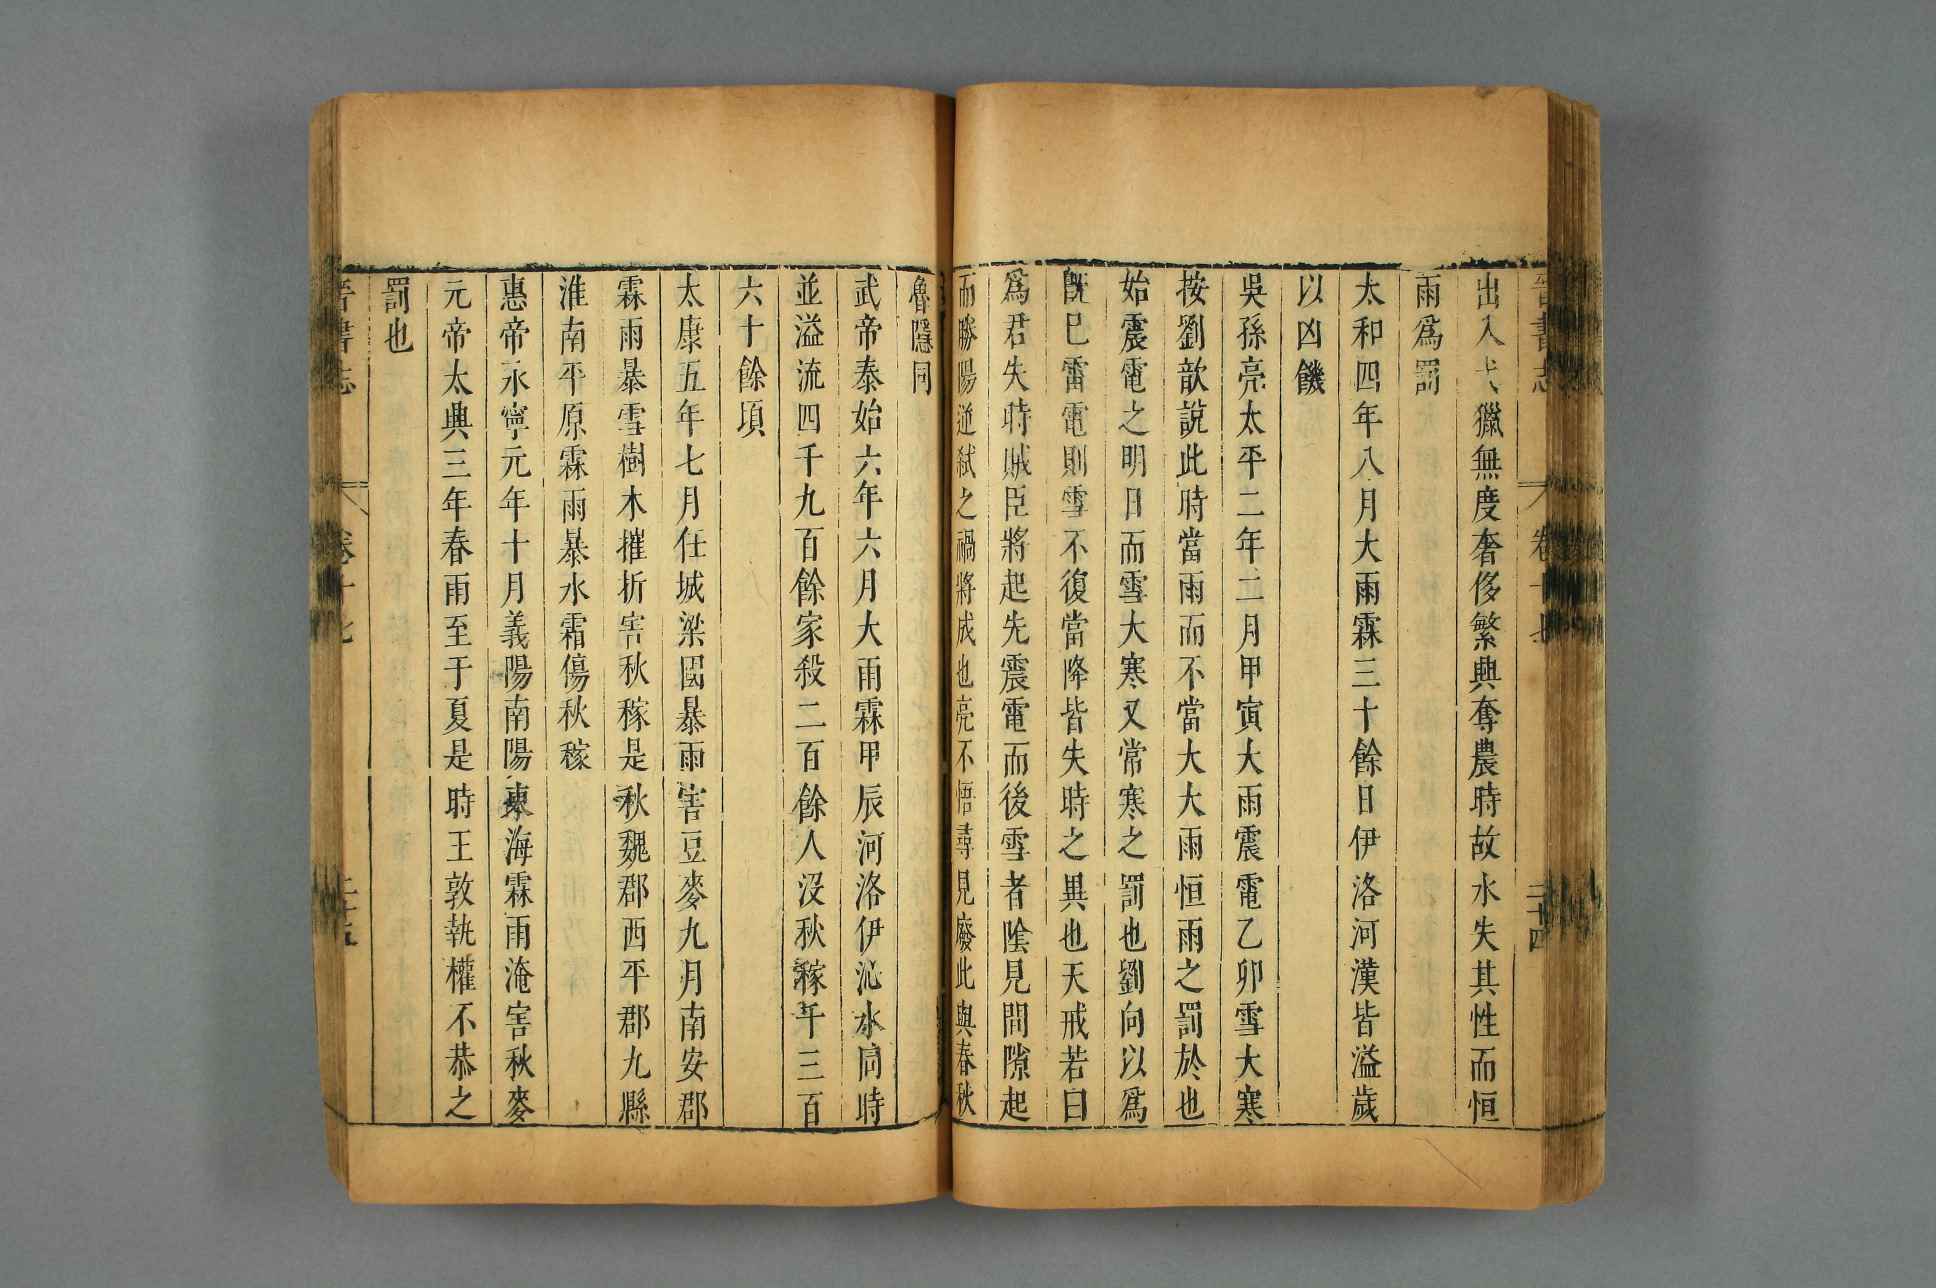 晉書志 卷十七 二十四
出入弋獵無度奢侈繁興奪農時故水失其性而恒
雨爲罰
太和四年八月大雨霖三十餘日伊洛河漢皆溢歲
以凶饑
吳孫亮太平二年二月甲寅大雨震電乙卯雪大寒
按劉歆說此時當雨而不當大大雨恒雨之罰於也
始震電之明日而雪大寒又常寒之罰也劉向以爲
旣已雷電則雪不復當降皆失時之異也天戒若曰
爲君失時賊臣將起先震電而後雪者陰見間隙起
而勝陽逆弑之禍將成也亮不悟尋見廢此與春秋
魯隱同
武帝泰始六年六月大雨霖甲辰河洛伊沁水同時
並溢流四千九百餘家殺二百餘人沒秋稼千三百
六十餘頃
太康五年七月任城梁國暴雨害豆麥九月南安郡
霖雨暴雪樹木摧折害秋稼是秋魏郡西平郡九縣
淮南平原霖雨暴水霜傷秋稼
惠帝永寧元年十月義陽南陽東海霖雨淹害秋麥
元帝太興三年春雨至于夏是時王敦執權不恭之
罰也
晉書志 卷十七 二十五